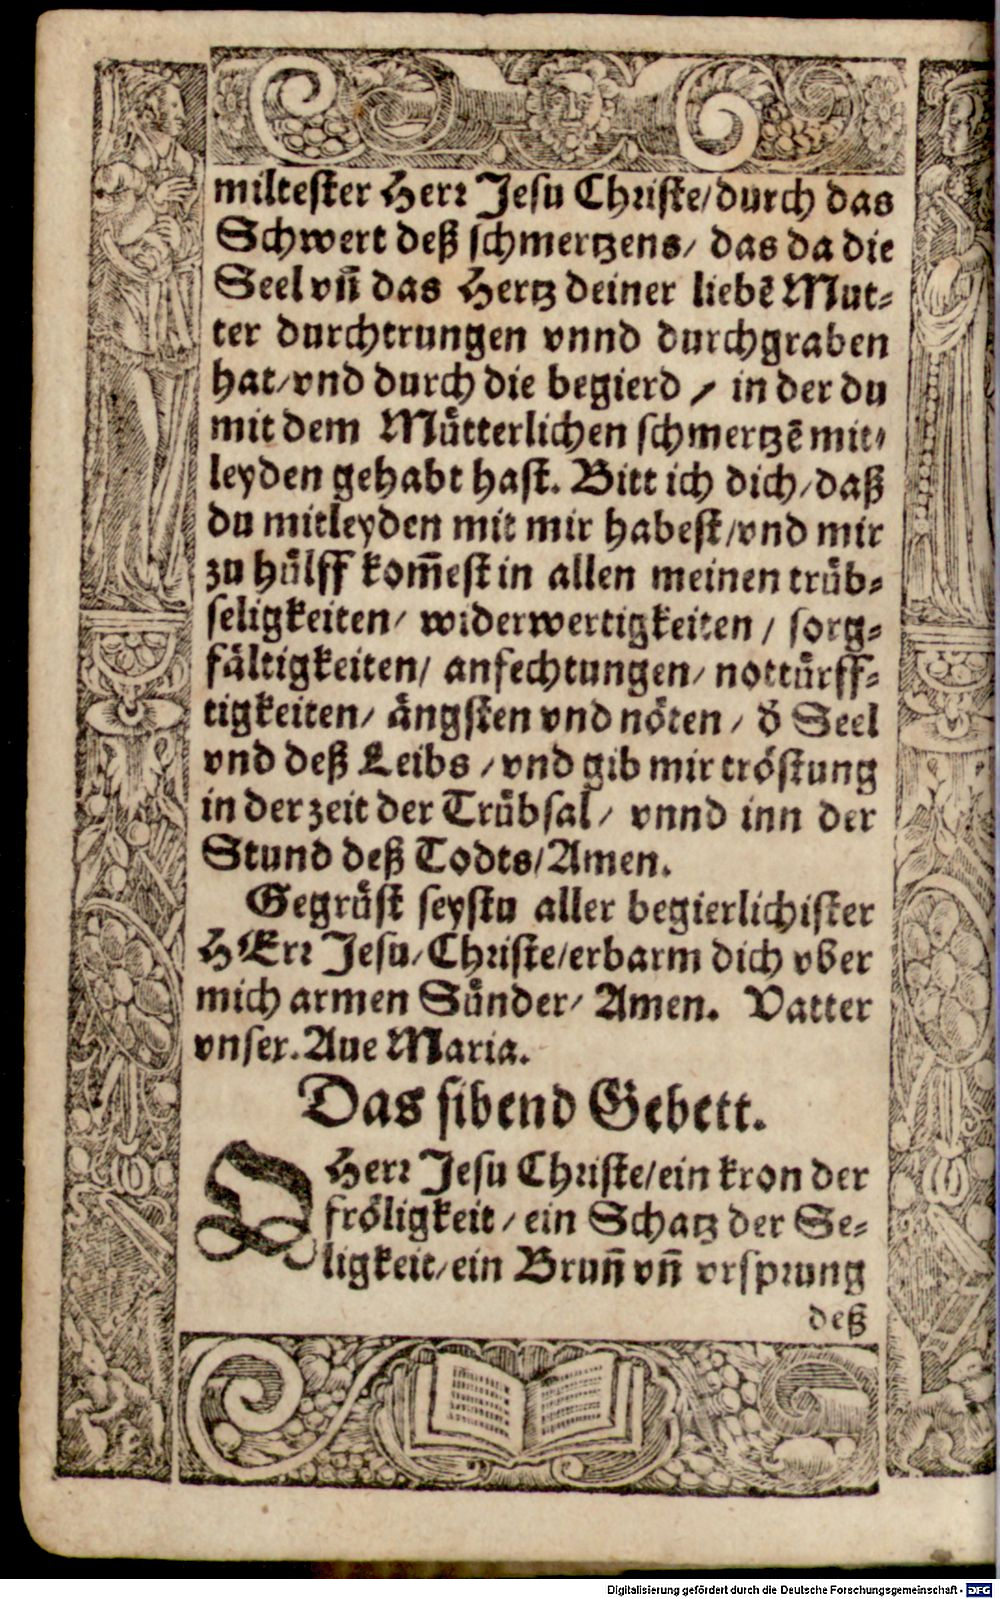 miltester Herr Jesu Christe/durch das
Schwert deß schmertzens/ das da die
Seel vñ das Hertz deiner liebẽ Mut⸗
ter durchtrungen vnnd durchgraben
hat/vnd durch die begierd / in der du
mit dem Muͤtterlichen schmertzẽ mit⸗
leyden gehabt hast. Bitt ich dich/daß
du mitleyden mit mir habest/vnd mir
zu huͤlff kom̃est in allen meinen truͤb⸗
seligkeiten/ widerwertigkeiten / sorg⸗
faͤltigkeiten/ anfechtungen/ nottuͤrff⸗
tigkeiten/ aͤngsten vnd noͤten / d̓ Seel
vnd deß Leibs /vnd gib mir troͤstung
in der zeit der Truͤbsal/ vnnd inn der
Stund deß Todts/Amen.
Gegruͤst seystu aller begierlichister
HErr Jesu/Christe/erbarm dich vber
mich armen Suͤnder/ Amen. Vatter
vnser. Aue Maria.
Das sibend Gebett.
O Herr Jesu Christe/ein kron der
froͤligkeit /ein Schatz der Se⸗
ligkeit/ein Brun̄ vn̄ vrsprung
deß
Digitalisierung gefördert durch die Deutsche Forschungsgemeinschaft - DFG